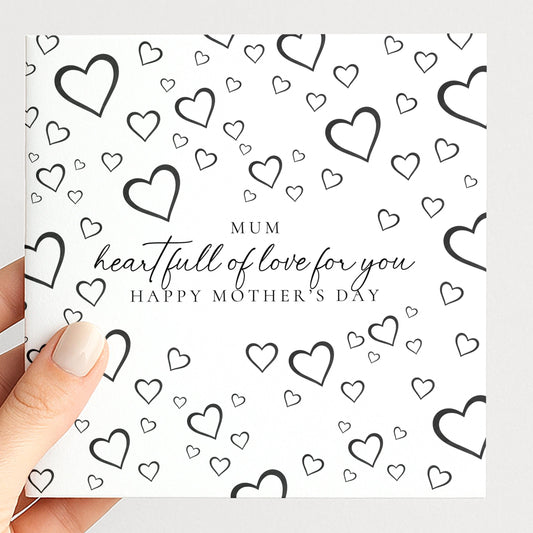 MUM
heart full of love for you
HAPPY MOTHER'S DAY